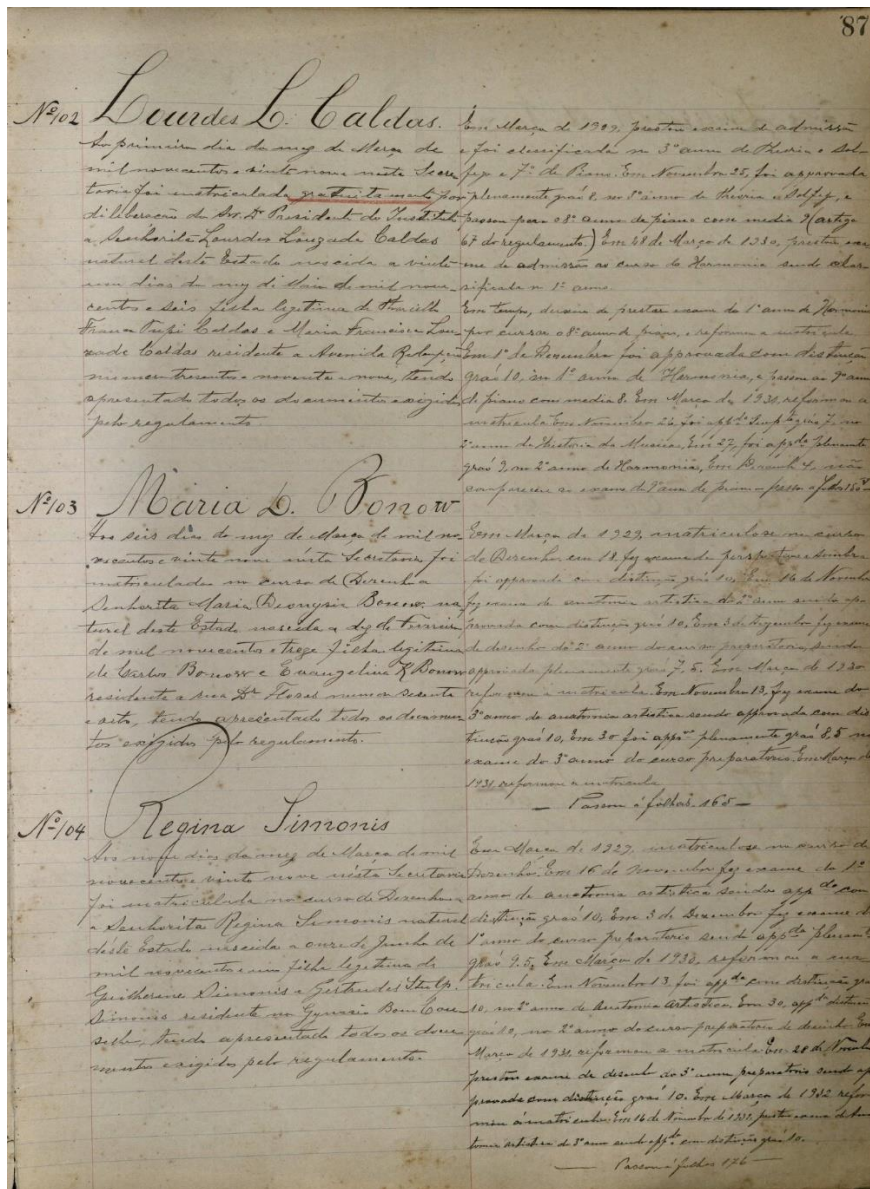 87
Nº 102 Lourdes L. Caldas.
Ao primeiro dia do mez de Março de
mil novecentos e vinte nove nesta Secre
taria foi matriculada gratuitamente por
diliberação do Snr. Dr. Presidente do Instituto
a Senhorita Lourdes Louzada Caldas
natural deste Estado nascida a vinte
um dias do mez de Maio de mil nove
centos e seis filha legitima de
Franco Tupi Caldas e Maria Francisca Lou
zada Caldas residente a Avenida Redempção
numero tresentos e noventa e nove, tendo
apresentado todos os documentos exigidos
pelo regulamento.
Em Março de 1929, prestou exame de admissão
e foi classificada no 3º anno de theoria e sol
fejo e 7º de Piano. Em Novembro 25, foi approvada
plenamente gráo 8, no 3º anno de theoria e Solfejo, e
passou para o 8º anno de piano com media 9 (artigo
67 do regulamento.) Em 18 de Março de 1930, prestou exa
me de admissão ao curso de Harmonia sendo clas
sificada no 1º anno.
Em tempo, deixou de prestar exame do 1º anno de Harmonia
por cursar o 8º anno de piano, e reformou a matricula
Em 1º de Dezembro foi approvada com distincção
gráo 10, no 1º anno de Harmonia, e passou ao 9º anno
de piano com media 8. Em Março de 1931, reformou a
matricula Em Novembro 26, foi appda. gráo 7, no
2º anno de Historia da Musica, Em 27, foi appda plenamente
gráo 9, no 2º anno de Harmonia, Em 4, não
compareceu ao exame do 9º anno de piano passa a folhas
Nº 103 Maria D. Bonow
Aos seis dias do mez de Março de mil no
vecentos e vinte nove nésta Secretaria foi
matriculada no curso de Desenho a
Senhorita Maria Dionysia Bonow na
tural deste Estado nascida a dez de Fevereiro
de mil novecentos e treze filha legitima
de Carlos Bonow e Evangelina K Bonow
residente a rua Dr. Flores numero sesenta
e oito, tendo apresentado todos os documen
tos exigidos pelo regulamento.
Em Março de 1929, matriculou-se no curso
de Desenho, em 18, fez exame de perspectiva e sombra
foi approvada com distinção gráo 10. Em 16 de Novembro
fez exame de anatomia artistica do 2º anno sendo ap
provada com distinção gráo 10, Em 3 de Dezembro fez exame
de desenho do 2º anno do curso preparatorio, sendo
approvada plenamente gráo 7,5. Em Março de 1930
reformou a matricula. Em Novembro 13, fez exame do
3º anno de anatomia artistica sendo approvada com dis
tinção gráo 10, Em 30 foi appda plenamente gráo 8,5 no
exame do 3º anno do curso preparatorio. Em Março de
1931, reformou a matricula
— Passou á folhas 165 —
Nº 104 Regina Simonis
Aos nove dias do mez de Março de mil
novecentos e vinte nove nésta Secretaria
foi matriculada no curso de Desenho
a Senhorita Regina Simonis natural
deste Estado nascida a onze de Junho de
mil novecentos e um filha legitima de
Guilherme Simonis e Gertrudes
Simonis residente no Gymnasio Bom Con
selho, tendo apresentado todos os docu
mentos exigidos pelo regulamento.
Em Março de 1929, matriculou-se no curso de
Desenho. Em 16 de Novembro fez exame do 1º
anno de anatomia artistica sendo appda com
distinção gráo 10. Em 3 de Dezembro fez exame do
1º anno do curso preparatorio sendo appda plenamte
gráo 9,5. Em Março de 1930, reformou a ma
tricula. Em Novembro 13, foi appda com distincção gráo
10, no 2º anno de Anatomia Artistica. Em 30, appda distincção
gráo 10, no 2º anno do curso preparatorio de desenho Em
Março de 1931 reformou a matricula Em 28 de Novembro
prestou exame de desenho do 3º anno preparatorio sendo ap
provada com distinção gráo 10. Em Março de 1932 refor
mou á matricula. Em 16 de Novembro de 1932, prestou exame de Ana
tomia artistica do 3º anno sendo appda com distincção gráo 10.
— Passou á folhas 176 —